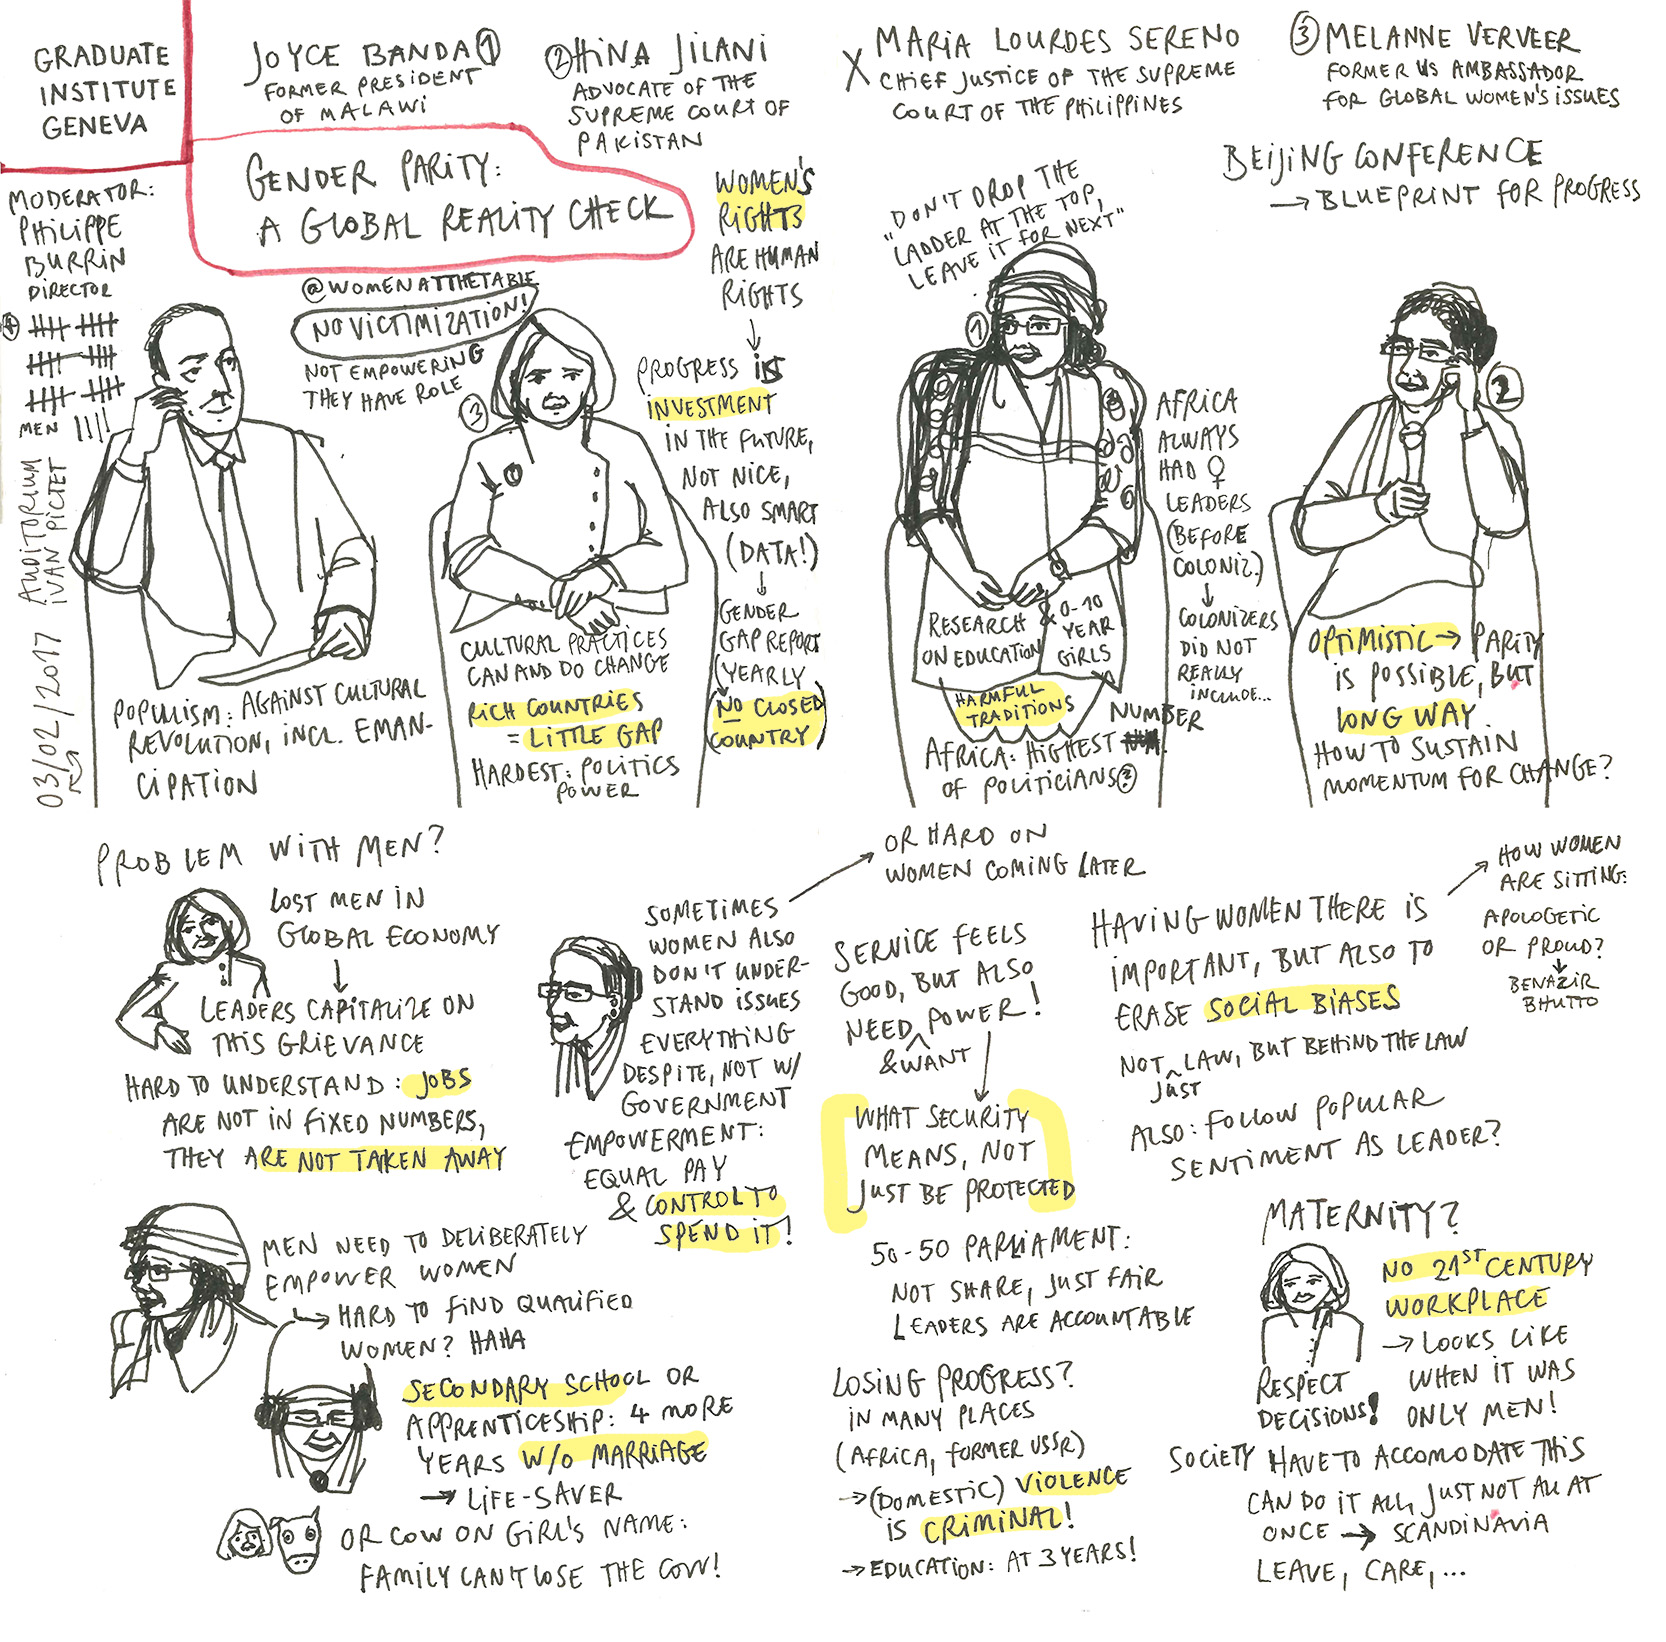 GRADUATE
INSTITUTE
GENEVA
JOYCE BANDA 1
FORMER PRESIDENT
OF MALAWI
2 HINA JILANI
ADVOCATE OF THE
SUPREME COURT OF
PAKISTAN
X MARIA LOURDES SERENO
CHIEF JUSTICE OF THE SUPREME
COURT OF THE PHILIPPINES
3 MELANNE VERVEER
FORMER US AMBASSADOR
FOR GLOBAL WOMEN'S ISSUES
GENDER PARITY:
A GLOBAL REALITY CHECK
MODERATOR:
PHILIPPE
BURRIN
DIRECTOR
MEN
AUDITORIUM
IVAN PICTET
03/02/2017
@WOMENATTHETABLE
NO VICTIMIZATION!
NOT EMPOWERING
THEY HAVE ROLE
3
WOMEN'S
RIGHTS
ARE HUMAN
RIGHTS
PROGRESS IS
INVESTMENT
IN THE FUTURE,
NOT NICE,
ALSO SMART
(DATA!)
GENDER
GAP REPORT
(YEARLY
NO CLOSED
COUNTRY)
"DON'T DROP THE
LADDER AT THE TOP,
LEAVE IT FOR NEXT"
1
BEIJING CONFERENCE
→ BLUEPRINT FOR PROGRESS
2
AFRICA
ALWAYS
HAD ♀
LEADERS
(BEFORE
COLONIZ.)
COLONIZERS
DID NOT
REALLY
INCLUDE...
POPULISM: AGAINST CULTURAL
REVOLUTION, INCL. EMAN-
CIPATION
CULTURAL PRACTICES
CAN AND DO CHANGE
RICH COUNTRIES
= LITTLE GAP
HARDEST: POLITICS
POWER
RESEARCH & 0-10
ON EDUCATION YEAR
GIRLS
HARMFUL
TRADITIONS
AFRICA: HIGHEST NUMBER
OF POLITICIANS ?
OPTIMISTIC → PARITY
IS POSSIBLE, BUT
LONG WAY.
HOW TO SUSTAIN
MOMENTUM FOR CHANGE?
PROBLEM WITH MEN?
LOST MEN IN
GLOBAL ECONOMY
LEADERS CAPITALIZE ON
THIS GRIEVANCE
HARD TO UNDERSTAND: JOBS
ARE NOT IN FIXED NUMBERS,
THEY ARE NOT TAKEN AWAY
MEN NEED TO DELIBERATELY
EMPOWER WOMEN
→ HARD TO FIND QUALIFIED
WOMEN? HAHA
SECONDARY SCHOOL OR
APPRENTICESHIP: 4 MORE
YEARS W/O MARRIAGE
→ LIFE-SAVER
OR COW ON GIRL'S NAME:
FAMILY CAN'T LOSE THE COW!
SOMETIMES
WOMEN ALSO
DON'T UNDER-
STAND ISSUES
EVERYTHING
DESPITE, NOT W/
GOVERNMENT
EMPOWERMENT:
EQUAL PAY
& CONTROL TO
SPEND IT!
OR HARD ON
WOMEN COMING LATER
SERVICE FEELS
GOOD, BUT ALSO
NEED POWER!
& WANT
WHAT SECURITY
MEANS, NOT
JUST BE PROTECTED
50-50 PARLIAMENT:
NOT SHARE, JUST FAIR
LEADERS ARE ACCOUNTABLE
LOSING PROGRESS?
IN MANY PLACES
(AFRICA, FORMER USSR)
→ (DOMESTIC) VIOLENCE
IS CRIMINAL!
→ EDUCATION: AT 3 YEARS!
HAVING WOMEN THERE IS
IMPORTANT, BUT ALSO TO
ERASE SOCIAL BIASES
NOT LAW, BUT BEHIND THE LAW
JUST
ALSO: FOLLOW POPULAR
SENTIMENT AS LEADER?
HOW WOMEN
ARE SITTING:
APOLOGETIC
OR PROUD?
BENAZIR
BHUTTO
MATERNITY?
NO 21ST CENTURY
WORKPLACE
→ LOOKS LIKE
WHEN IT WAS
ONLY MEN!
RESPECT
DECISIONS!
SOCIETY HAVE TO ACCOMODATE THIS
CAN DO IT ALL, JUST NOT ALL AT
ONCE → SCANDINAVIA
LEAVE, CARE, ...